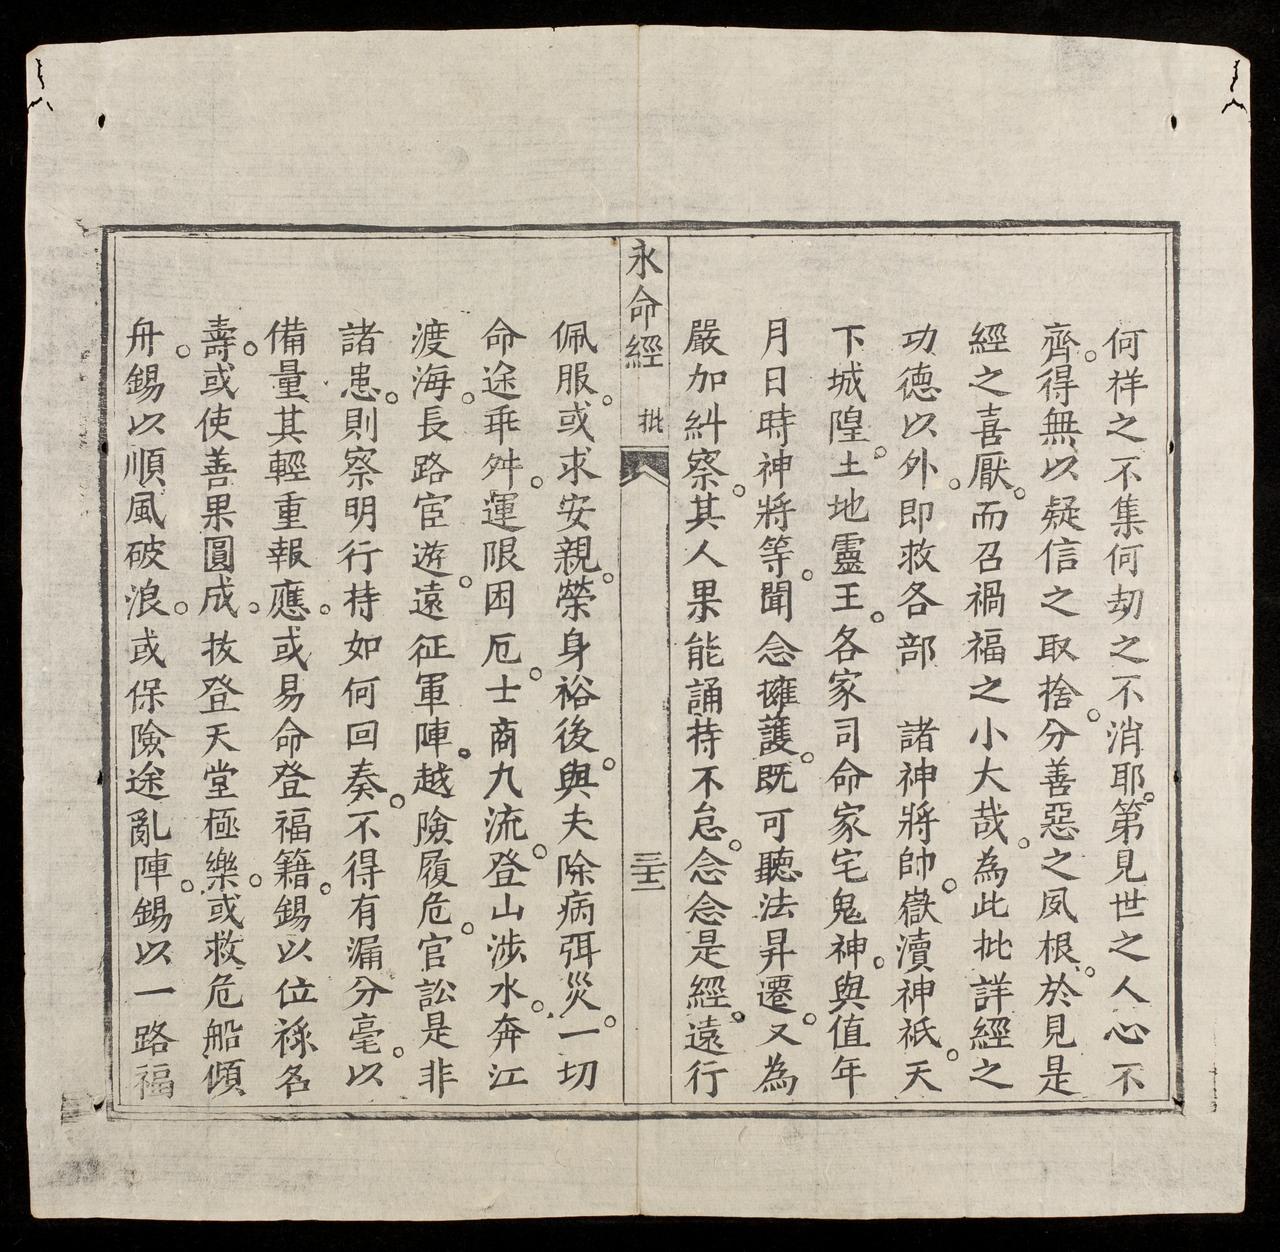 何祥之不集何劫之不消耶。第見世之人心不
齊。得無以疑信之取捨。分善惡之夙根。於見是
經之喜厭。而召禍福之小大哉。為此批詳經之
功德以外。即救各部　諸神將帥。嶽瀆神祇。天
下城隍。土地靈王。各家司命家宅鬼神。與值年
月日時神將等。聞念擁護。既可聽法昇遷。又為
嚴加糾察。其人果能誦持不怠。念念是經。遠行
永命經　批　三十二
佩服。或求安親。榮身裕後。與夫除病弭災。一切
命途乖舛。運限困厄。士商九流。登山涉水。奔江
渡海。長路宦遊。遠征軍陣。越險履危。官訟是非
諸患。則察明行持如何回奏。不得有漏分毫。以
備量其輕重報應。或易命登福籍。錫以位祿名
壽。或使善果圓成。拔登天堂極樂。或救危船傾
舟。錫以順風破浪。或保險途亂陣。錫以一路福